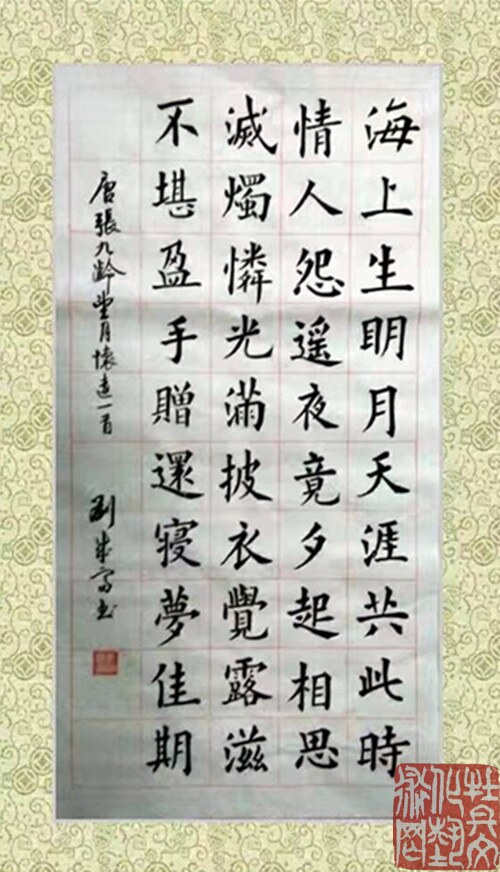 海上生明月天涯共此時
情人怨遥夜竟夕起相思
滅燭憐光滿披衣覺露滋
不堪盈手贈還寢夢佳期
唐張九齡望月懷遠一首
劉成富书
牡丹文化艺术网